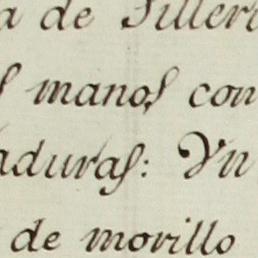 a de Siller
s manos con
aduras: Yn
de morillo